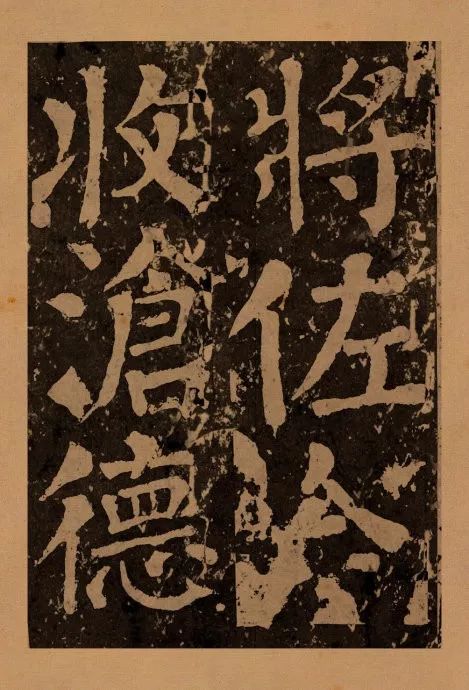 將佐
收滄德